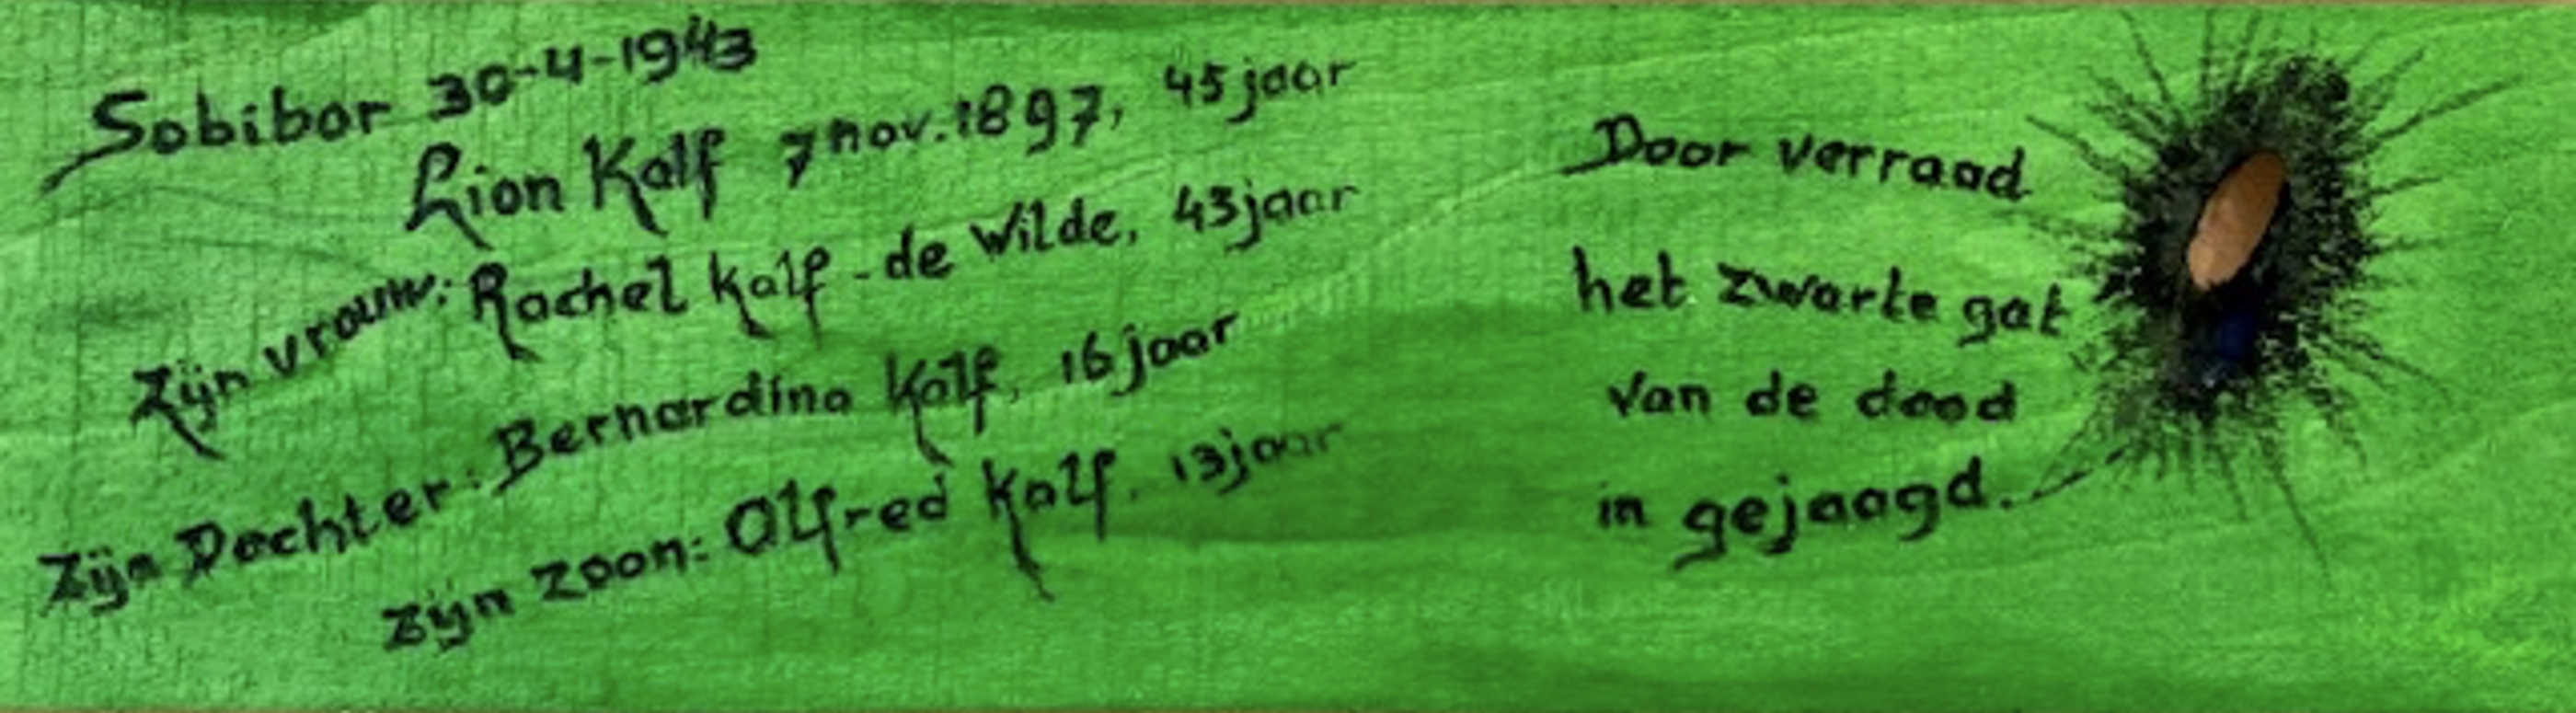 Sobibor 30-4-1943
Lion Kalf 7 nov. 1897, 45 jaar
Zijn vrouw: Rachel Kalf - de Wilde, 43 jaar
Zijn Dochter: Bernardina Kalf, 16 jaar
Zijn zoon: Alfred Kalf. 13 jaar
Door verraad
het zwarte gat
van de dood
in gejaagd.